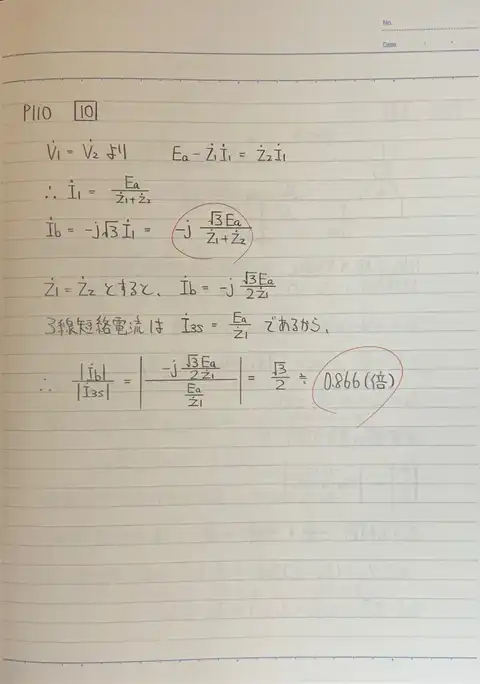 No.
Date
P110 10
V̇₁ = V̇₂ より Ea - Ż₁İ₁ = Ż₂İ₁
∴ İ₁ = Ea/(Ż₁+Ż₂)
İb = -j√3 İ₁ = -j √3Ea/(Ż₁+Ż₂)
Ż₁ = Ż₂ とすると、 İb = -j √3Ea/(2Ż₁)
3線短絡電流は İ3s = Ea/Ż₁ であるから、
∴ |İb|/|İ3s| = |(-j √3Ea/(2Ż₁))/(Ea/Ż₁)| = √3/2 ≒ 0.866(倍)